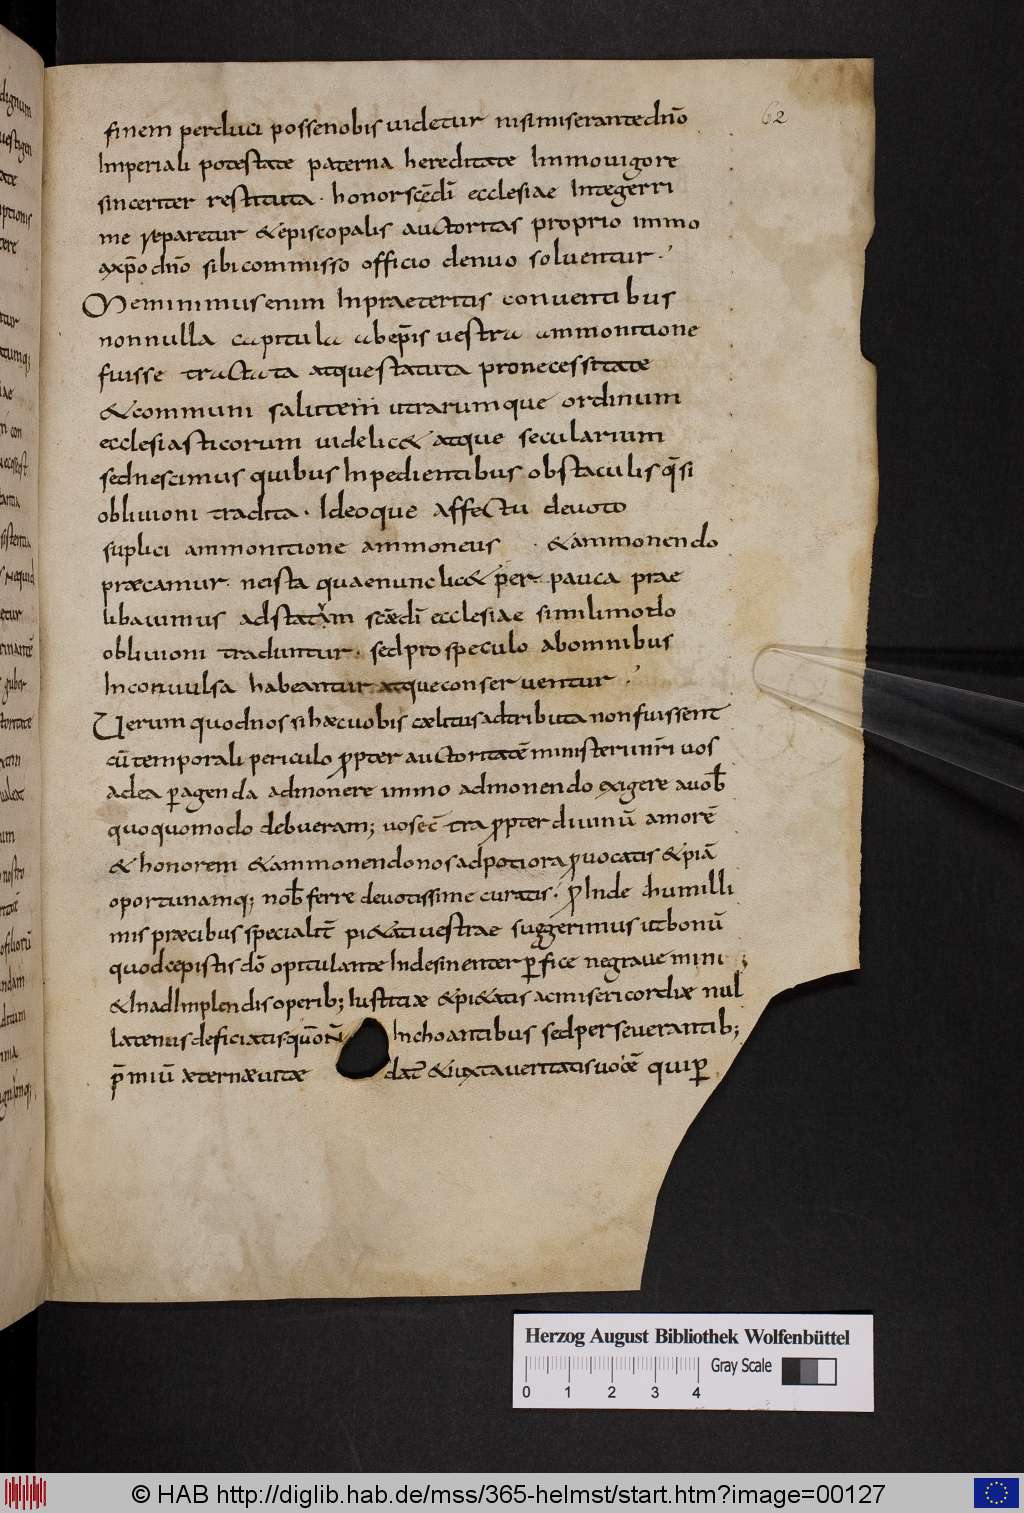 62
finem perduci posse nobis uidetur nisi miserante dn̄o
Imperiali potestate paterna hereditate Immo uigore
sinceriter restituta · honor sc̄e dī ecclesiae Integerri
me reparetur & episcopalis auctoritas proprio immo
a xp̄o dn̄o sibi commisso officio denuo soluentur ·
Meminimus enim In praeteritis conuentibus
nonnulla capitula ab ep̄is uestra ammonitione
fuisse tractata atque statuta pro necessitate
& communi salutem utrarumque ordinum
ecclesiasticorum uidelic& atque secularium
sed nescimus quibus Inpedientibus obstaculis q̄si
obliuioni tradita · Ideoque affectu deuoto
suplici ammonitione ammoneus · & ammonendo
præcamur · ne ista quae nunc lic& per pauca prae
libauimus ad statum sc̄æ dī ecclesiae simili modo
obliuioni traduntur · sed pro speculo ab omnibus
Inconuulsa habeantur atque conseruentur ·
Uerum quod nos si hæc uobis cælitus adtributa non fuissent
cū temporali periculo p̄pter auctoritatē ministerii nr̄i uos
ad ea peragenda admonere immo admonendo exigere a uob̄
quoquomodo debueram; uos ec̄tra p̄pter diuinū amorē
& honorem & ammonendo nos ad potiora p̄uocatis & piā
oportunamq; nob̄ ferre deuotissime curatis · p̄Inde humilli
mis præcibus specialit̄ pi&ati uestrae suggerimus ut bonū
quod cepistis dō opitulante Indesinenter p̄fice ne graue mini ;
& In adImplendis operib; Iustitiæ & pi&atis ac misericordiæ nul
latenus deficiatis quōn̄ Inchoantibus sed perseuerantib;
p̄miū æternæ uitæ dat̄ & iuxta ueritatis uocē qui p̄
Herzog August Bibliothek Wolfenbüttel
Gray Scale
0 1 2 3 4
© HAB http://diglib.hab.de/mss/365-helmst/start.htm?image=00127